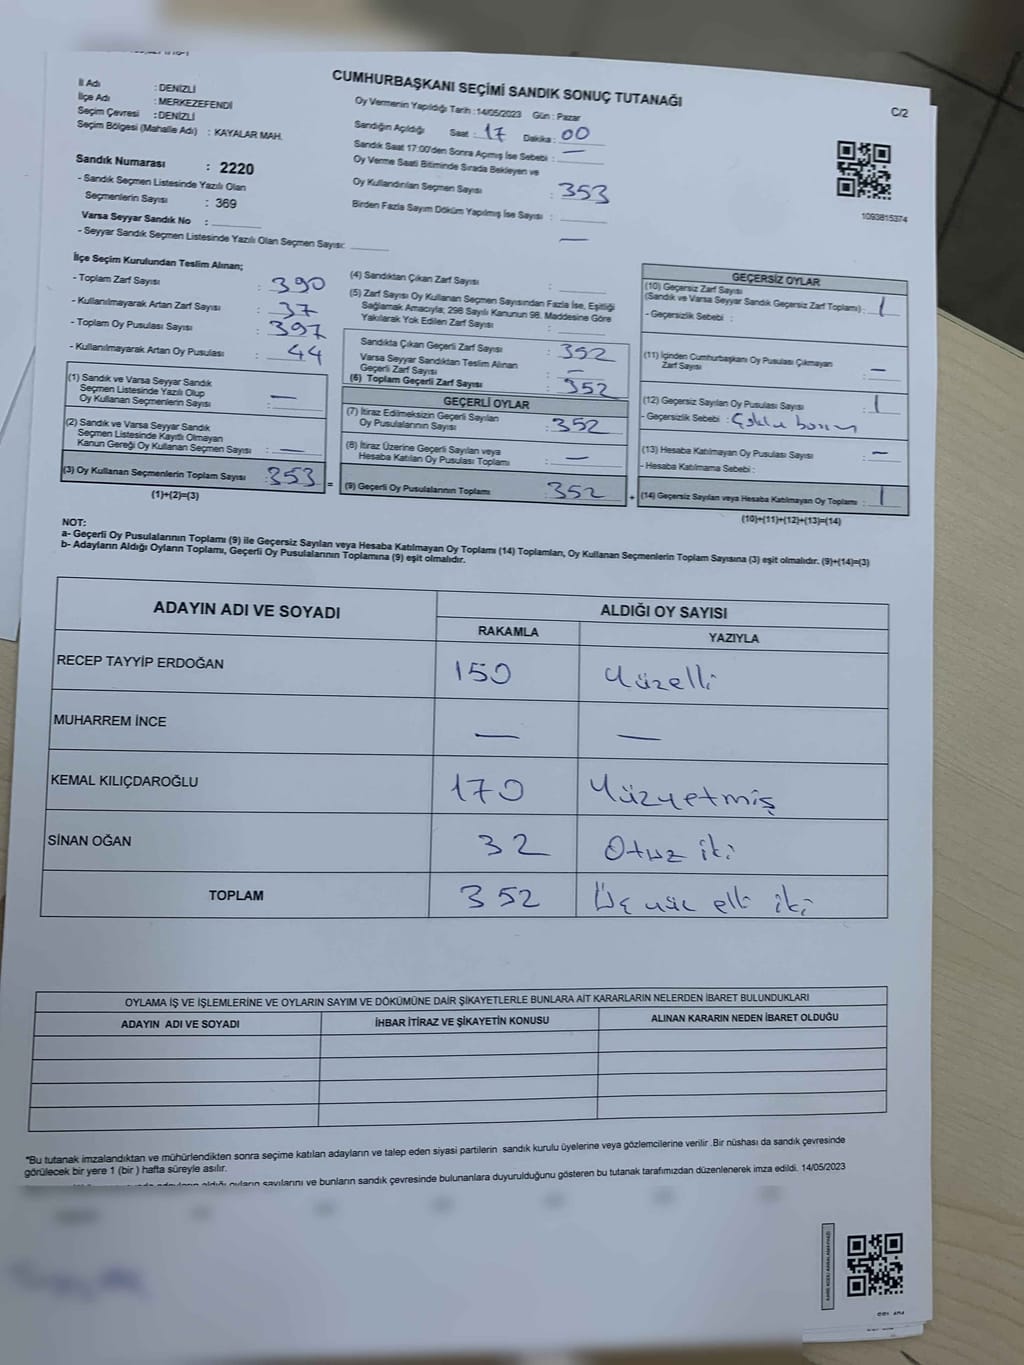 CUMHURBAŞKANI SEÇİMİ SANDIK SONUÇ TUTANAĞI
C/2
İl Adı : DENİZLİ
İlçe Adı : MERKEZEFENDİ
Seçim Çevresi : DENİZLİ
Seçim Bölgesi (Mahalle Adı) : KAYALAR MAH.
Oy Vermenin Yapıldığı Tarih : 14/05/2023 Gün : Pazar
Sandığın Açıldığı Saat : 17 Dakika : 00
Sandık Saat 17:00'den Sonra Açımış İse Sebebi : —
Oy Verme Saati Bitiminde Sırada Bekleyen ve
Oy Kullandırılan Seçmen Sayısı : 353
Birden Fazla Sayım Döküm Yapılmış İse Sayısı : —
1093815374
Sandık Numarası : 2220
- Sandık Seçmen Listesinde Yazılı Olan
Seçmenlerin Sayısı : 369
Varsa Seyyar Sandık No :
- Seyyar Sandık Seçmen Listesinde Yazılı Olan Seçmen Sayısı:
İlçe Seçim Kurulundan Teslim Alınan;
- Toplam Zarf Sayısı : 390
- Kullanılmayarak Artan Zarf Sayısı : 37
- Toplam Oy Pusulası Sayısı : 397
- Kullanılmayarak Artan Oy Pusulası : 44
(1) Sandık ve Varsa Seyyar Sandık
Seçmen Listesinde Yazılı Olup
Oy Kullanan Seçmenlerin Sayısı : —
(2) Sandık ve Varsa Seyyar Sandık
Seçmen Listesinde Kayıtlı Olmayan
Kanun Gereği Oy Kullanan Seçmen Sayısı : —
(3) Oy Kullanan Seçmenlerin Toplam Sayısı : 353
(1)+(2)=(3)
=
(4) Sandıktan Çıkan Zarf Sayısı :
(5) Zarf Sayısı Oy Kullanan Seçmen Sayısından Fazla İse, Eşitliği
Sağlamak Amacıyla; 298 Sayılı Kanunun 98. Maddesine Göre
Yakılarak Yok Edilen Zarf Sayısı :
Sandıkta Çıkan Geçerli Zarf Sayısı : 352
Varsa Seyyar Sandıktan Teslim Alınan
Geçerli Zarf Sayısı : —
(6) Toplam Geçerli Zarf Sayısı : 352
GEÇERLİ OYLAR
(7) İtiraz Edilmeksizin Geçerli Sayılan
Oy Pusulalarının Sayısı : 352
(8) İtiraz Üzerine Geçerli Sayılan veya
Hesaba Katılan Oy Pusulası Toplamı : —
(9) Geçerli Oy Pusulalarının Toplamı : 352
+
GEÇERSİZ OYLAR
(10) Geçersiz Zarf Sayısı
(Sandık ve Varsa Seyyar Sandık Geçersiz Zarf Toplamı) : 1
- Geçersizlik Sebebi :
(11) İçinden Cumhurbaşkanı Oy Pusulası Çıkmayan
Zarf Sayısı : —
(12) Geçersiz Sayılan Oy Pusulası Sayısı : 1
- Geçersizlik Sebebi :
(13) Hesaba Katılmayan Oy Pusulası Sayısı : —
- Hesaba Katılmama Sebebi :
(14) Geçersiz Sayılan veya Hesaba Katılmayan Oy Toplamı : 1
(10)+(11)+(12)+(13)=(14)
NOT:
a- Geçerli Oy Pusulalarının Toplamı (9) ile Geçersiz Sayılan veya Hesaba Katılmayan Oy Toplamı (14) Toplamları, Oy Kullanan Seçmenlerin Toplam Sayısına (3) eşit olmalıdır. (9)+(14)=(3)
b- Adayların Aldığı Oyların Toplamı, Geçerli Oy Pusulalarının Toplamına (9) eşit olmalıdır.
ADAYIN ADI VE SOYADI
ALDIĞI OY SAYISI
RAKAMLA YAZIYLA
RECEP TAYYİP ERDOĞAN 150 Yüzelli
MUHARREM İNCE — —
KEMAL KILIÇDAROĞLU 170 Yüzyetmiş
SİNAN OĞAN 32 Otuz iki
TOPLAM 352 Üç yüz elli iki
OYLAMA İŞ VE İŞLEMLERİNE VE OYLARIN SAYIM VE DÖKÜMÜNE DAİR ŞİKAYETLERLE BUNLARA AİT KARARLARIN NELERDEN İBARET BULUNDUKLARI
ADAYIN ADI VE SOYADI İHBAR İTİRAZ VE ŞİKAYETİN KONUSU ALINAN KARARIN NEDEN İBARET OLDUĞU
*Bu tutanak imzalandıktan ve mühürlendikten sonra seçime katılan adayların ve talep eden siyasi partilerin sandık kurulu üyelerine veya gözlemcilerine verilir .Bir nüshası da sandık çevresinde
görülecek bir yere 1 (bir ) hafta süreyle asılır.
adayların aldığı oyların sayılarını ve bunların sandık çevresinde bulunanlara duyurulduğunu gösteren bu tutanak tarafımızdan düzenlenerek imza edildi. 14/05/2023